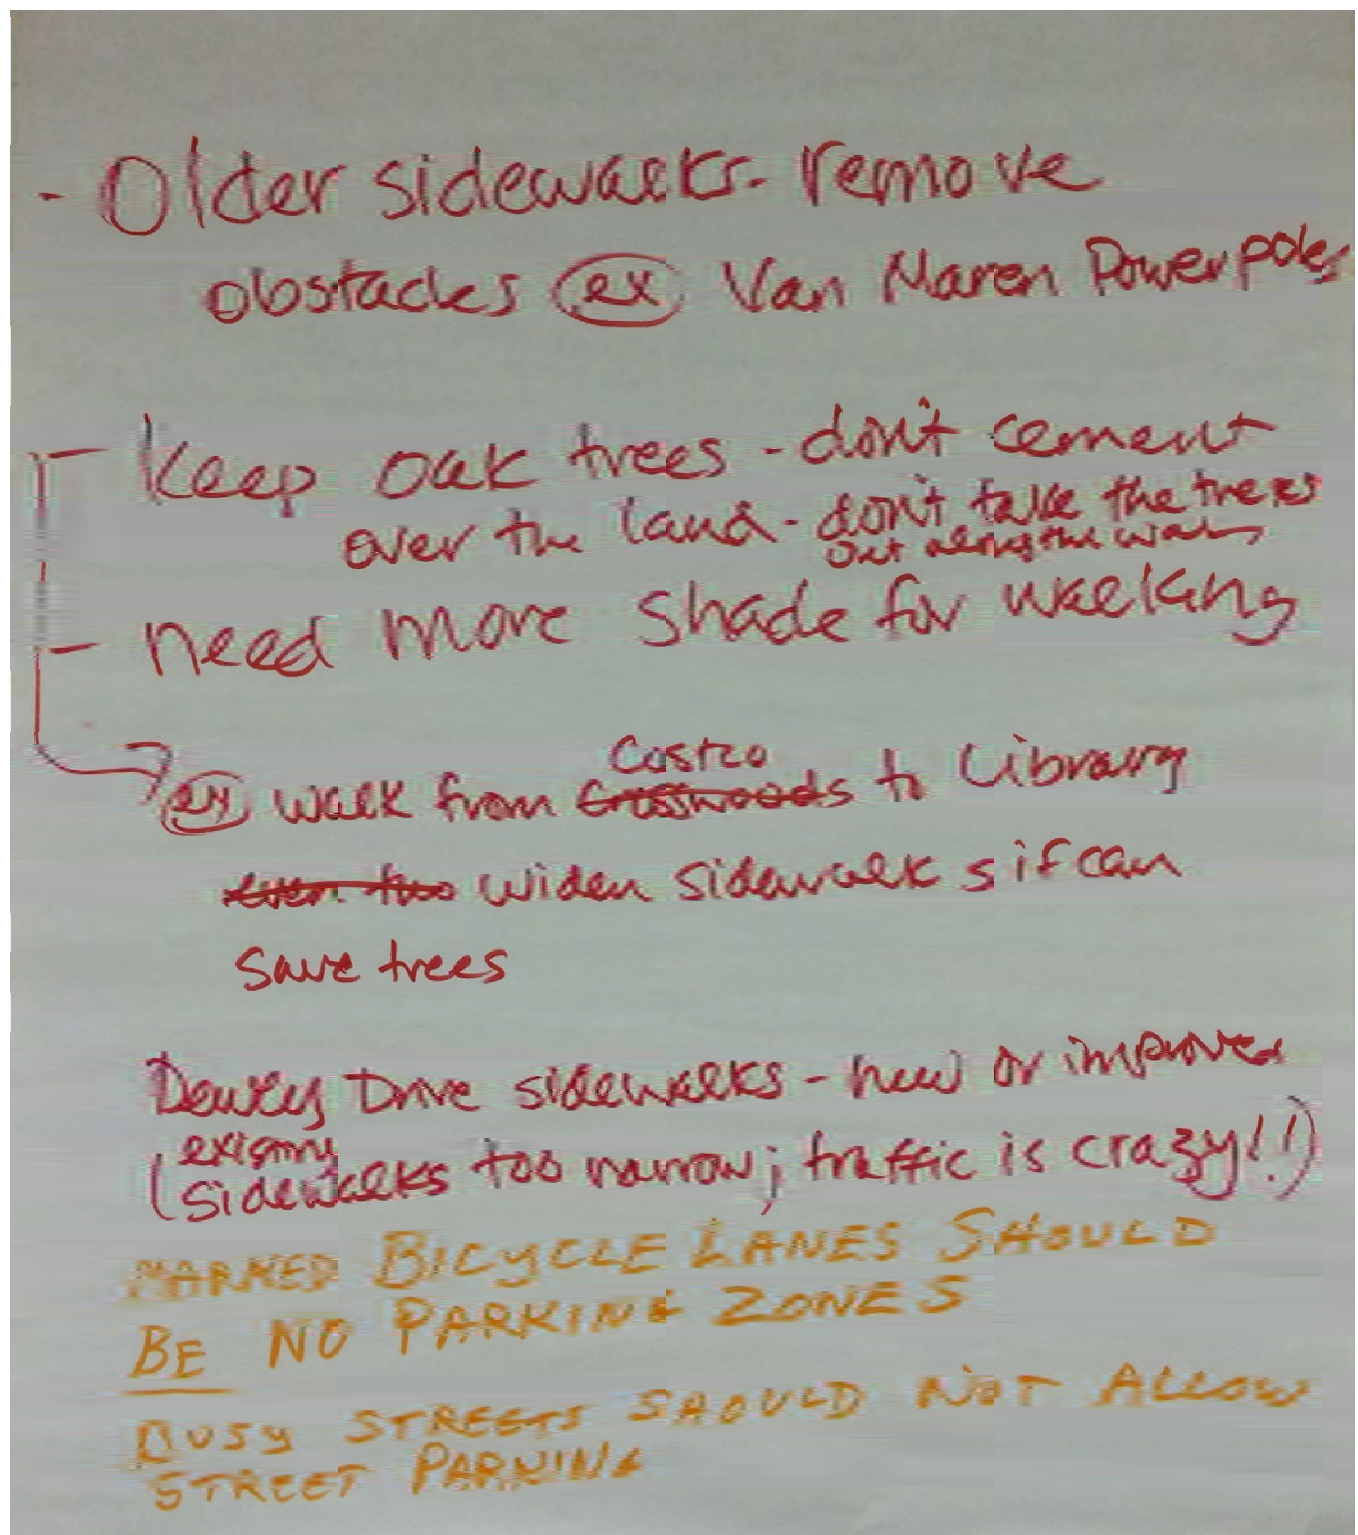 - Older sidewalks - remove
obstacles ex Van Maren Powerpoles
- Keep oak trees - don't cement
over the land - don't take the trees
out along the way
- need more shade for walking
Costco
ex walk from Crosswoods to Library
even two widen sidewalks if can
save trees
Dewey Drive sidewalks - new or improved
existing
(sidewalks too narrow; traffic is crazy!!)
MARKED BICYCLE LANES SHOULD
BE NO PARKING ZONES
BUSY STREETS SHOULD NOT ALLOW
STREET PARKING